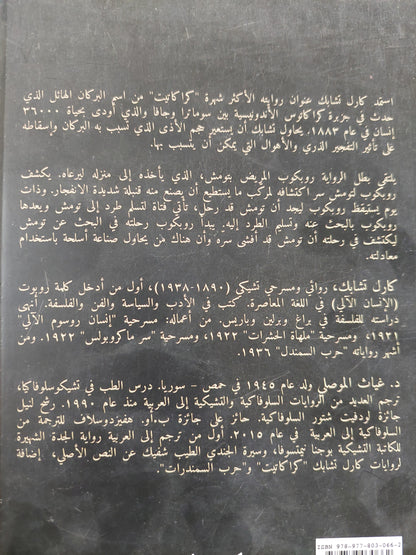 استمد كارل تشابك عنوان روايته الأكثر شهرة "كراكاتيت" من اسم البركان الهائل الذي
حدث في جزيرة كراكاتوس الأندونيسية بين سوماترا وجافا والذي أودى بحياة ٣٦٠٠٠
إنسان في عام ١٨٨٣. يحاول تشابك أن يستعير حجم الأذى الذي تسبب به البركان وإسقاطه
على تأثير التفجير الذري والأهوال التي يمكن أن يتسبب بها.
يلتقي بطل الرواية بروبكوب المريض بتومش، الذي يأخذه إلى منزله ليرعاه. يكشف
روبكوب لتومش سر اكتشافه لمركب ما يستطيع أن يصنع منه قنبلة شديدة الانفجار. وذات
يوم يستيقظ روبكوب ليجد أن تومش قد رحل، تأتي فتاة لتسلم طرد إلى تومش وبعدها
روبكوب بالبحث عنه وتسليم الطرد إليه. يبدأ روبكوب رحلته في البحث عن تومش
ليكتشف في رحلته أن تومش قد أفشى سره وأن هناك من يحاول صناعة أسلحة باستخدام
معادلته.
كارل تشابك، روائي ومسرحي تشيكي (١٨٩٠-١٩٣٨)، أول من أدخل كلمة روبوت
(الإنسان الآلي) في اللغة المعاصرة. كتب في الأدب والسياسة والفن والفلسفة. أنهى
دراسته للفلسفة في براغ وبرلين وباريس. من أعماله: مسرحية "إنسان روسوم الآلي"
١٩٢١، ومسرحية "ملهاة الحشرات" ١٩٢٢، ومسرحية "سر ماكروبولس" ١٩٢٢. ومن
أشهر رواياته "حرب السمندل" ١٩٣٦.
د. غياث الموصلي ولد عام ١٩٤٥ في حمص - سوريا. درس الطب في تشيكوسلوفاكيا،
ترجم العديد من الروايات السلوفاكية والتشيكية إلى العربية منذ عام ١٩٩٠. رشح لنيل
جائزة لودفيت شتور السلوفاكية. حائز على جائزة ب.أو. هفيزدوسلاف للترجمة من
السلوفاكية إلى العربية في عام ٢٠١٥. أول من ترجم إلى العربية رواية الجدة الشهيرة
للكاتبة التشيكية بوجنا نيمتسوفا، وسيرة الجندي الطيب شفيك عن النص الأصلي، إضافة
لروايات كارل تشابك "كراكاتيت" و"حرب السمندرات".
ISBN 978-977-803-066-2